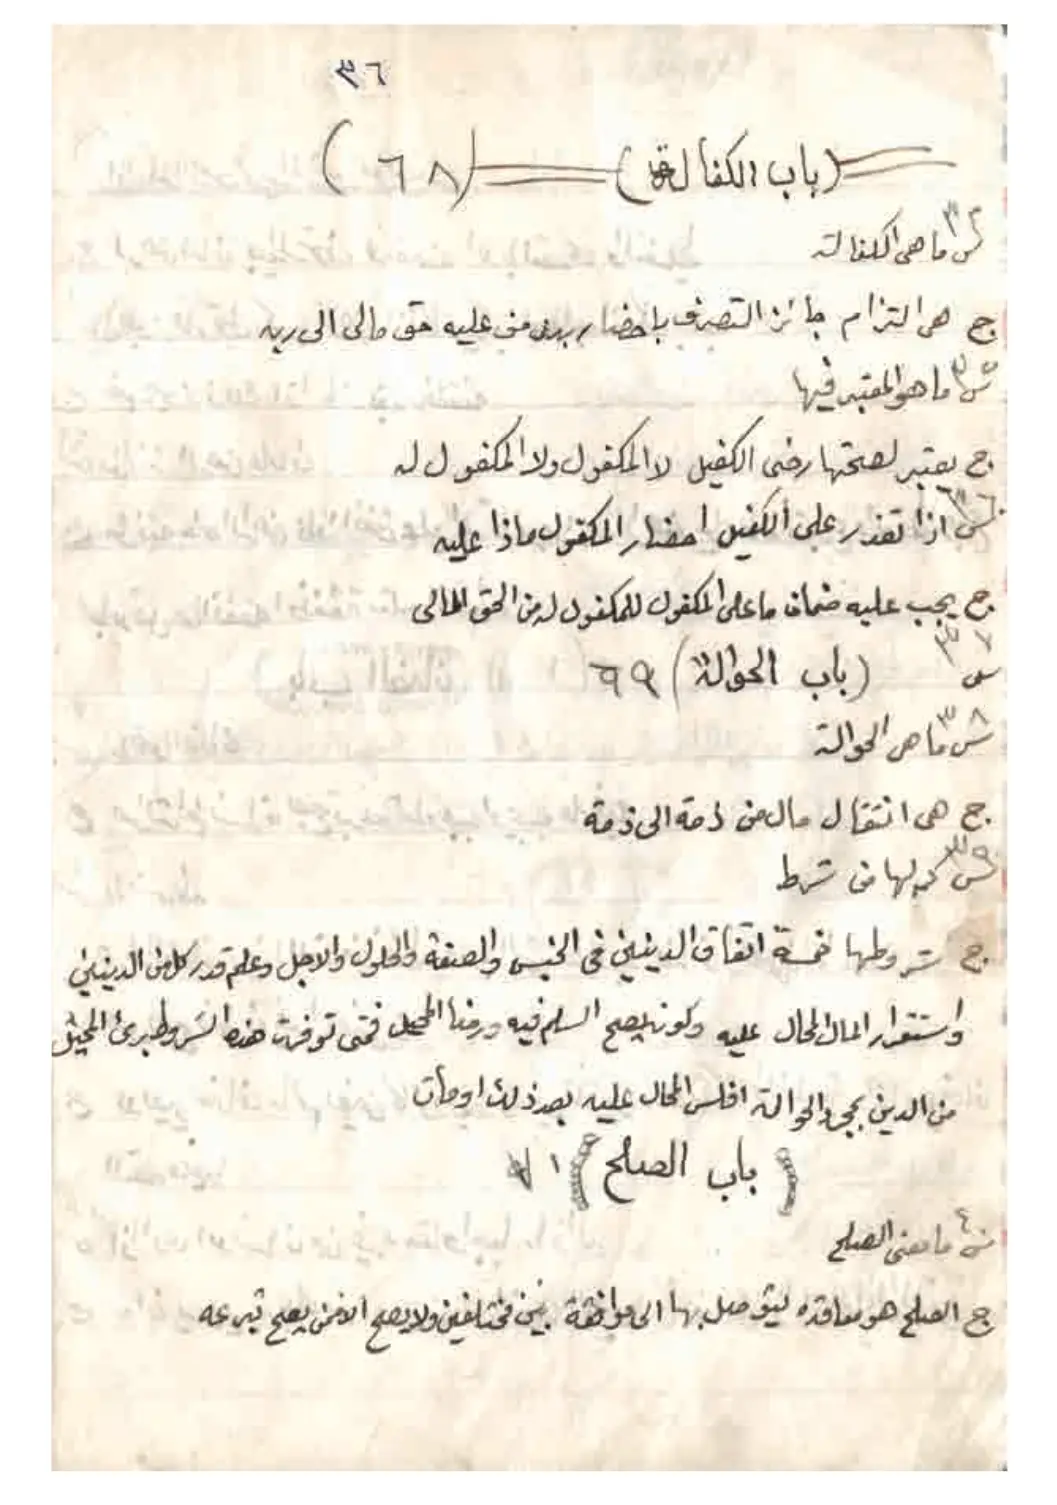 ٣٦
(باب الكفالة) (٦٨)
س٣٤ ما هى الكفالة
ج هى التزام جائز التصرف باحضار بدن من عليه حق مالى الى ربه
س٣٥ ما هو المعتبر فيها
ج يعتبر لصحتها رضى الكفيل لا المكفول ولا المكفول له
س٣٦ اذا تعذر على الكفيل احضار المكفول ماذا عليه
ج يجب عليه ضمان ما على المكفول للمكفول له من الحق المالى
س٣٧ (باب الحوالة) ٦٩
س٣٨ ما هى الحوالة
ج هى انتقال مال من ذمة الى ذمة
س٣٩ كم لها من شرط
ج شروطها خمسة اتفاق الدينين فى الجنس والصفة والحلول والاجل وعلم قدر كل من الدينين
واستقرار المال المحال عليه وكونه يصح السلم فيه ورضا المحيل فمتى توفرت هذه الشروط برئ المحيل
من الدين بمجرد الحوالة افلس المحال عليه بعد ذلك او مات
(باب الصلح) ٧١
س٤٠ ما معنى الصلح
ج الصلح هو معاقدة ليتوصل بها الى موافقة بين مختلفين ولا يصح الا ممن يصح تبرعه